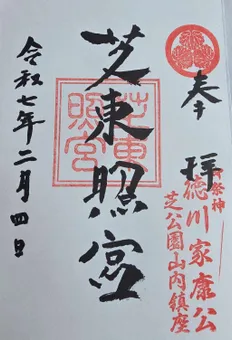 奉拝
御祭神
徳川家康公
芝公園山内鎮座
芝東照宮
芝東照宮
令和七年二月四日